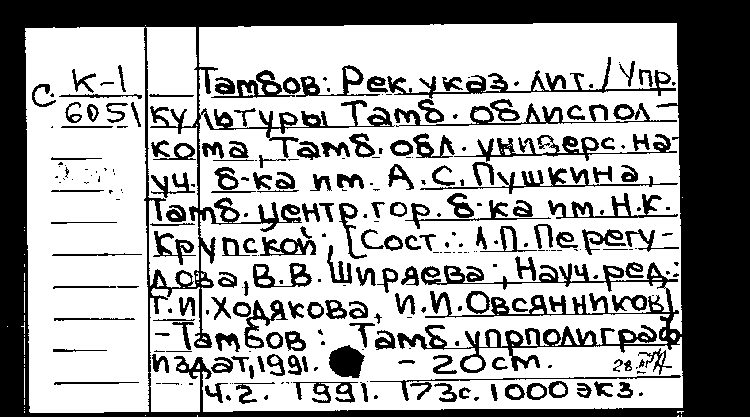 С К-1
6051
Тамбов: Рек. указ. лит. / Упр.
культуры Тамб. облиспол-
кома, Тамб. обл. универс. на-
уч. б-ка им. А.С. Пушкина,
Тамб. центр. гор. б-ка им. Н.К.
Крупской; [Сост.: Л.П. Перегу-
дова, В.В. Ширяева; Науч. ред.:
Т.И. Ходякова, И.И. Овсянников]
- Тамбов : Тамб. упрполиграф
издат, 1991. - 20 см.
Ч.2. 1991. 173 с. 1000 экз.